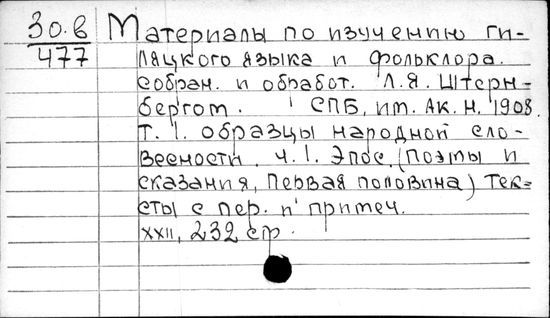 30.6
477
Материалы по изучению ги-
ляцкого языка и фольклора.
собран. и обработ. Л.Я. Штерн-
бергом. СПБ, ип. Ак. Н. 1908.
Т. 1. образцы народной сло-
весности. ч. 1. Эпос. (Поэмы и
сказания, первая половина) Тек-
сты с пер. и примеч.
XXII, 232 стр.